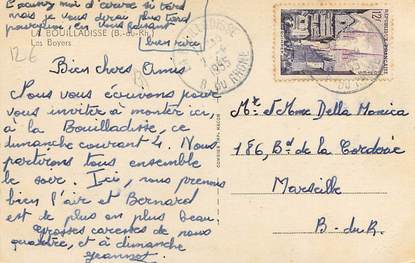 Excusez moi d'écrire si tard
mais je vous dirai plus tard
pourquoi, en vous faisant
bien rire
LA BOUILLADISSE (B.-du-Rh.)
Les Boyers
126
Bien chers Amis
Nous vous écrivons pour
vous inviter à monter ici,
à la Bouilladisse, ce
dimanche courant 4. Nous
partirons tous ensemble
le soir. Ici, nous prenons
bien l'air et Bernard
est de plus en plus beau.
Grosses caresses de nous
quatre, et à dimanche
Jeannot.
12F
1955
B. DU RHONE
Mr. et Mme Della Monica
186, Bd de la Corderie
Marseille
B.-du-R.